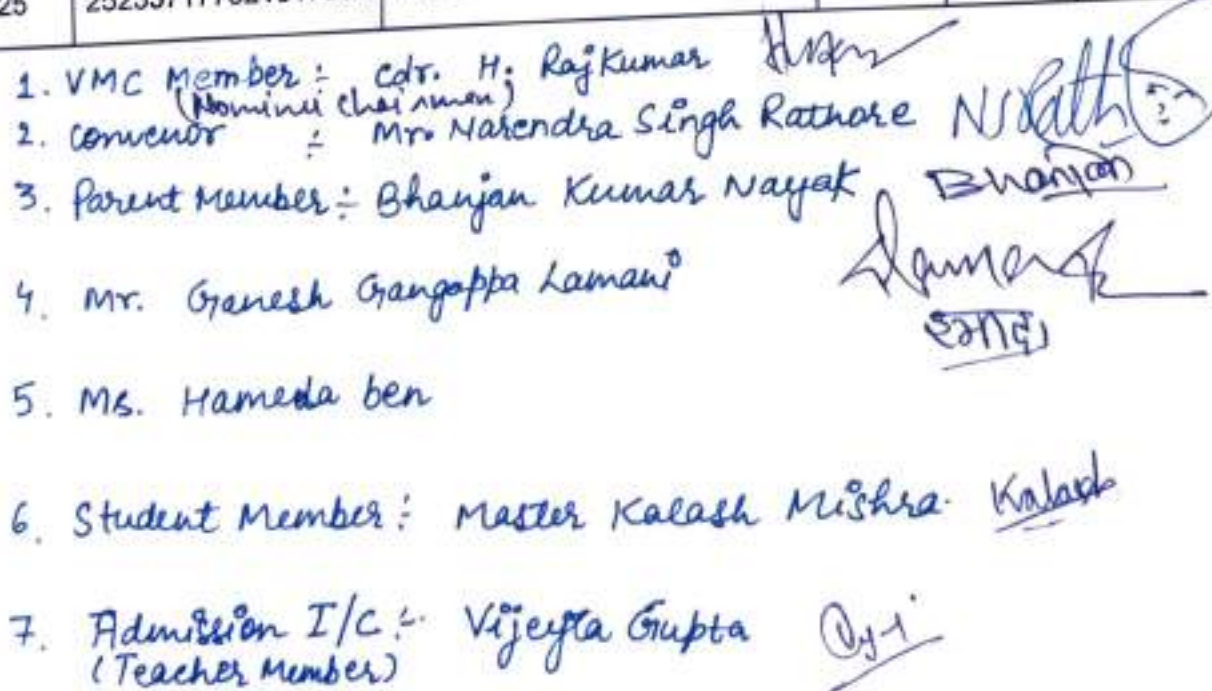 25
1. VMC Member :- Cdr. H. RajKumar
(Nominee Chairman)
2. Convenor :- Mr. Narendra Singh Rathore NSRath
3. Parent Member :- Bhanjan Kumar Nayak Bhanjan
4. Mr. Ganesh Gangappa Lamani
5. Ms. Hameda ben
6. Student Member :- Master Kalash Mishra. Kalash
7. Admission I/C :- Vijeyta Gupta
(Teacher Member)